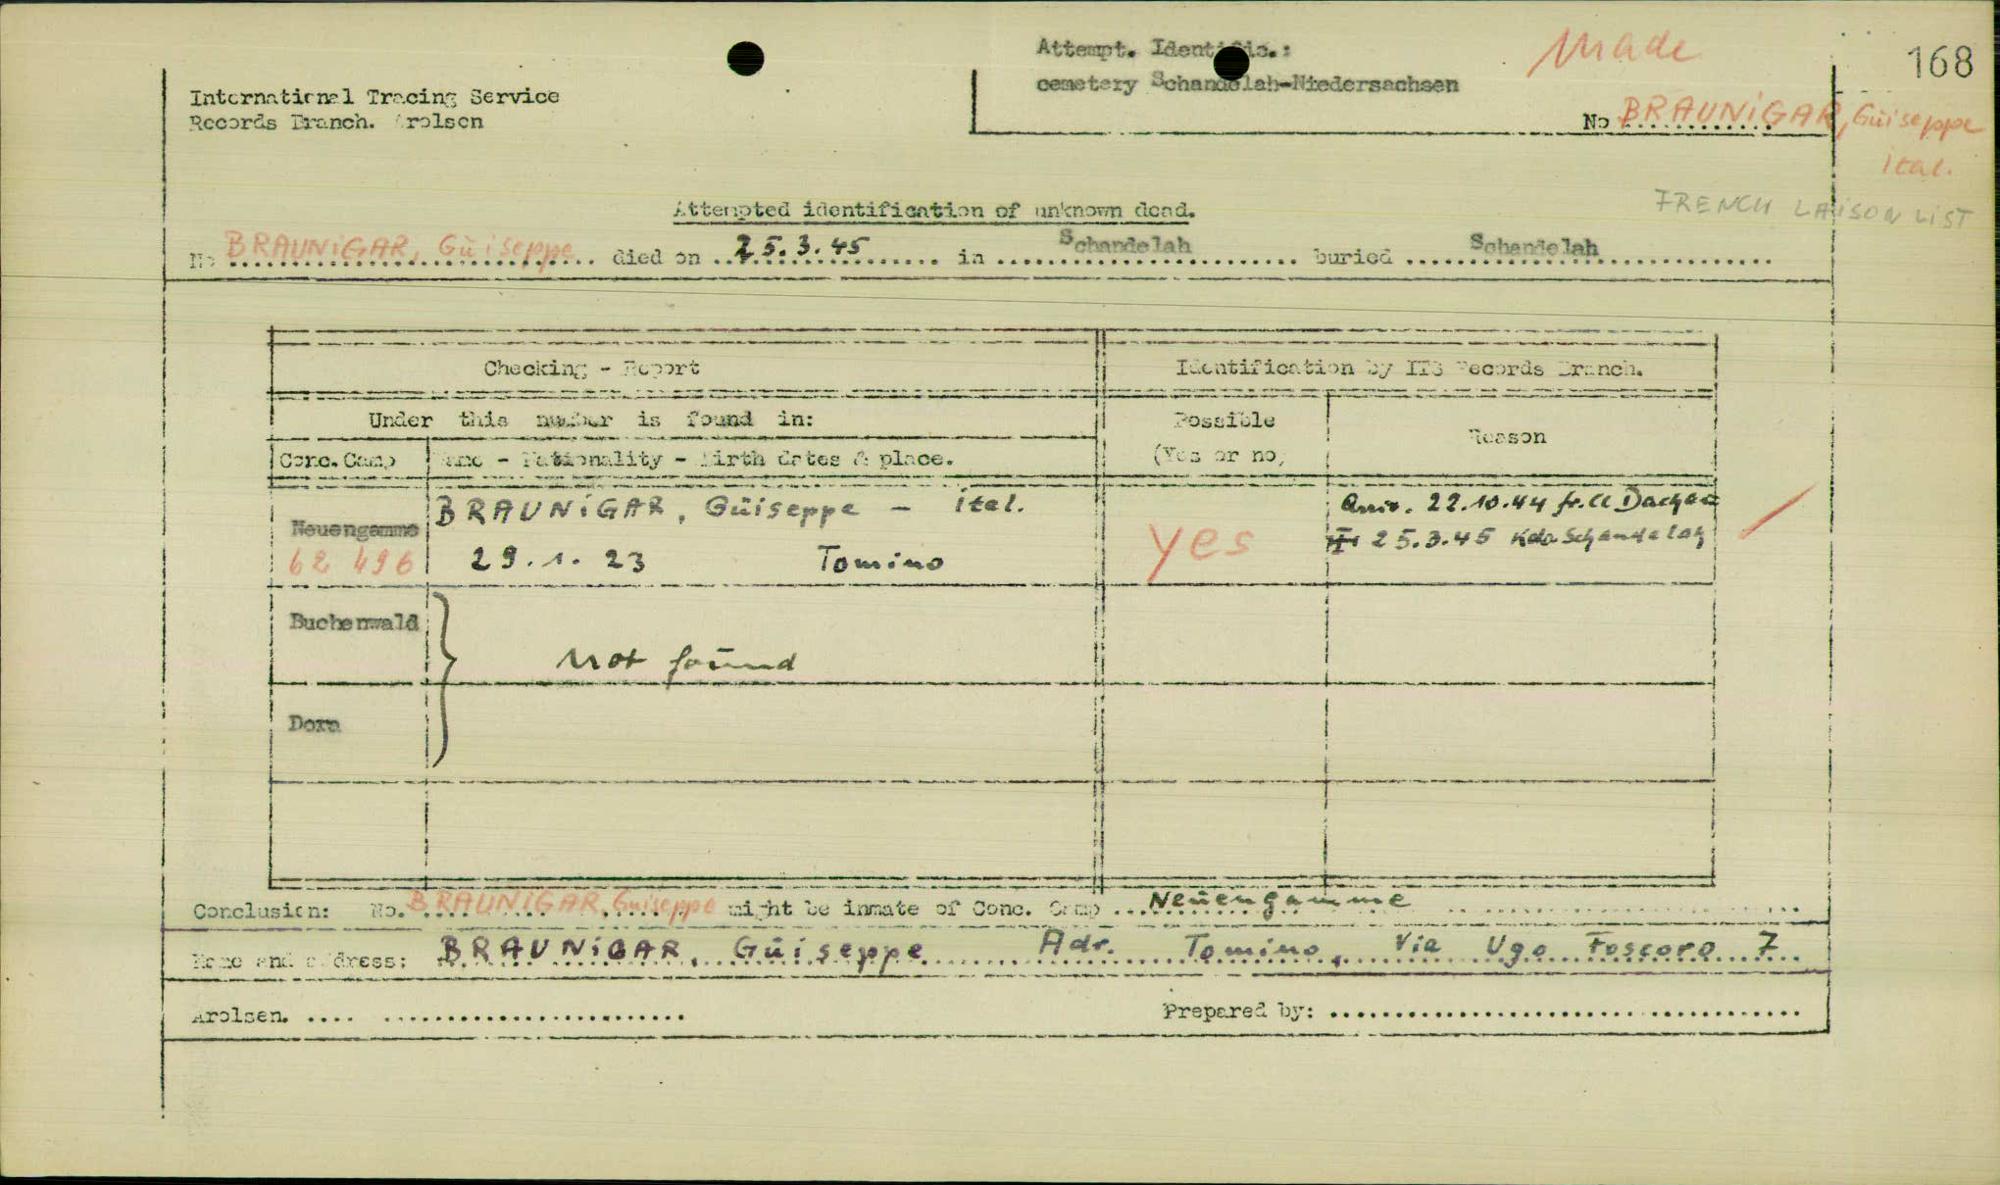 168
Attempt. Identific.: Made
cemetery Schandelah-Niedersachsen
International Tracing Service
Records Branch. Arolsen
No BRAUNiGAR, Güiseppe
ital.
FRENCH LAISON LIST
Attempted identification of unknown dead.
No BRAUNiGAR, Güiseppe died on 25.3.45 in Schandelah buried Schandelah
Checking - Report Identification by ITS Records Branch.
Under this number is found in: Possible Reason
Conc.Camp Name - Nationality - Birth dates & place. (Yes or no)
Neuengamme BRAUNiGAR, Güiseppe - ital. yes Arriv. 22.10.44 fr. Cc Dachau
62 496 29.1.23 Tomino 25.3.45 Kdo Schandelah
Buchenwald
not found
Dora
Conclusion: No. BRAUNIGAR, Guiseppe might be inmate of Conc. Camp Neüengamme
Name and address: BRAUNiGAR, Güiseppe Adr. Tomino, Via Ugo Foscoro 7
Arolsen. Prepared by: